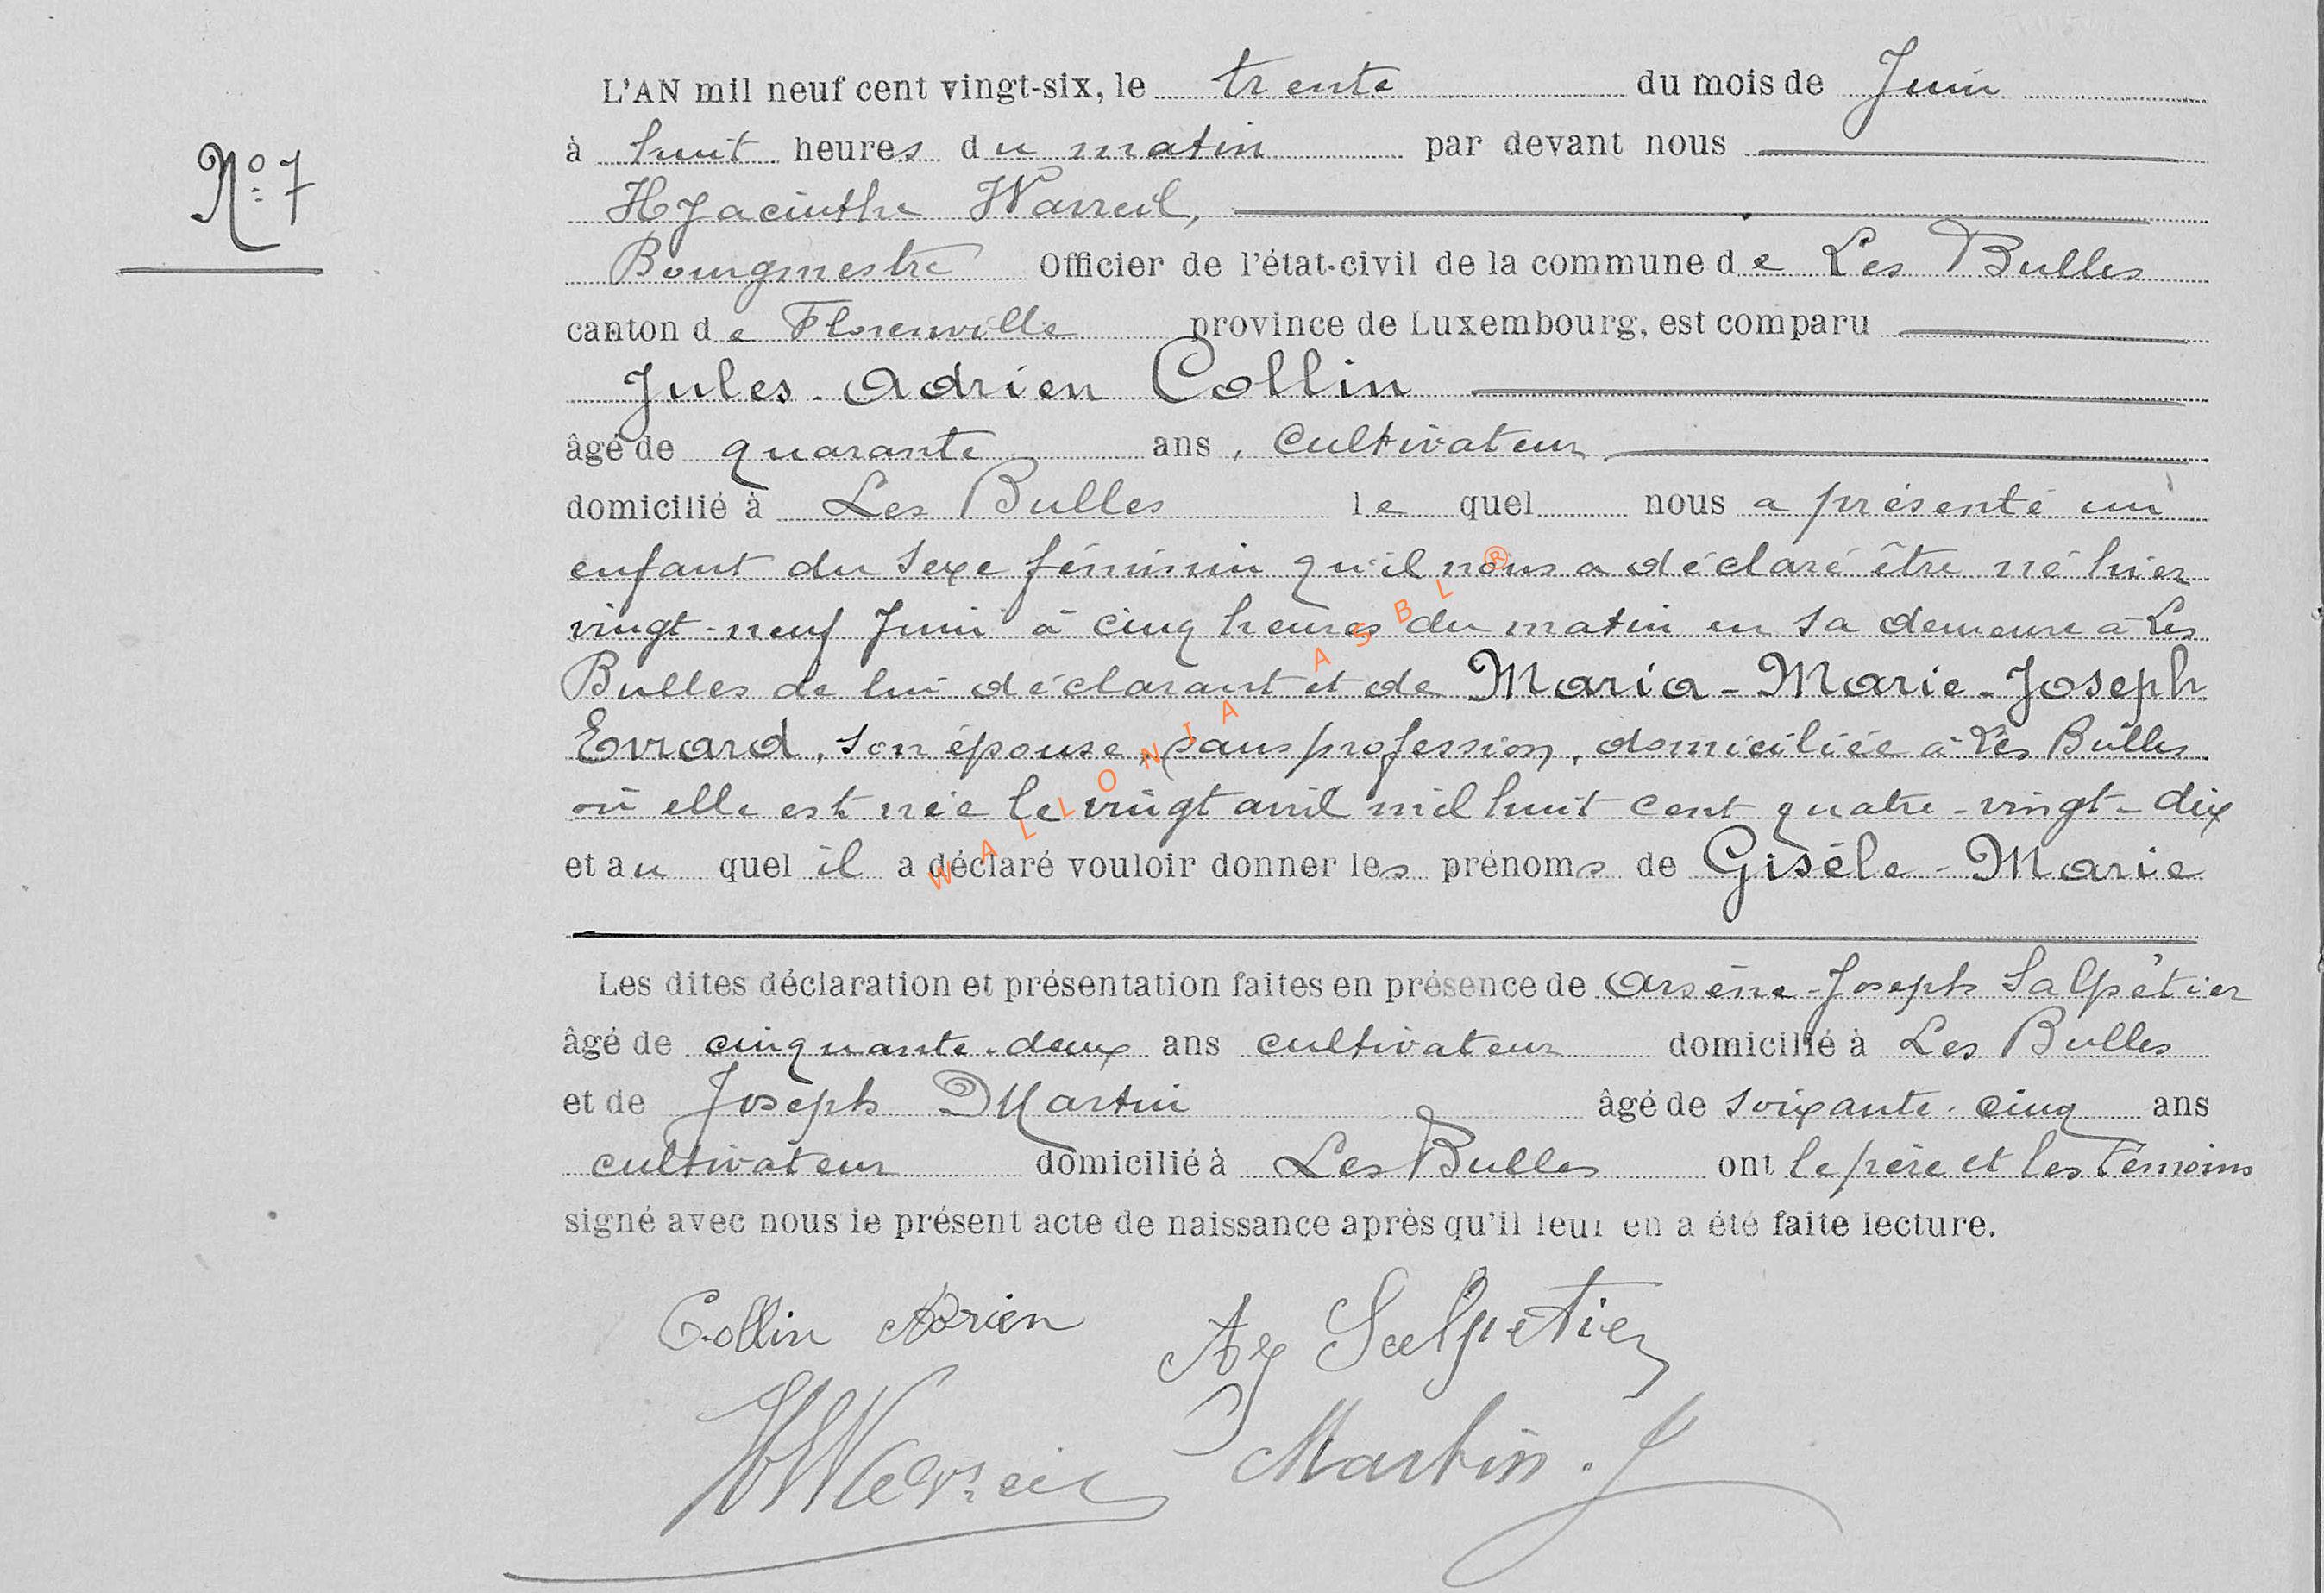 L'AN mil neuf cent vingt-six, le trente du mois de Juin
à huit heures du matin par devant nous
N° 7
Hyacinthe
Bourgmestre Officier de l'état-civil de la commune de Les Bulles
canton de Florenville province de Luxembourg, est comparu
Jules-Adrien Collin
âgé de quarante ans, cultivateur,
domicilié à Les Bulles lequel nous a présenté un
enfant du sexe féminin qu'il nous a déclaré être né hier
vingt-neuf Juin à cinq heures du matin en sa demeure à Les
Bulles de lui déclarant et de Maria-Marie-Joseph
Evrard, son épouse, sans profession, domiciliée à Les Bulles
où elle est née le vingt avril mil huit cent quatre-vingt-dix
et auquel il a déclaré vouloir donner les prénoms de Gisèle-Marie
WALLONIA ASBL ®
Les dites déclaration et présentation faites en présence de Arsène-Joseph Salpétier
âgé de cinquante-deux ans cultivateur domicilié à Les Bulles
et de Joseph Martin âgé de soixante-cinq ans
cultivateur domicilié à Les Bulles ont le père et les témoins
signé avec nous le présent acte de naissance après qu'il leur en a été faite lecture.
Collin Adrien Salpétier
Martin. J